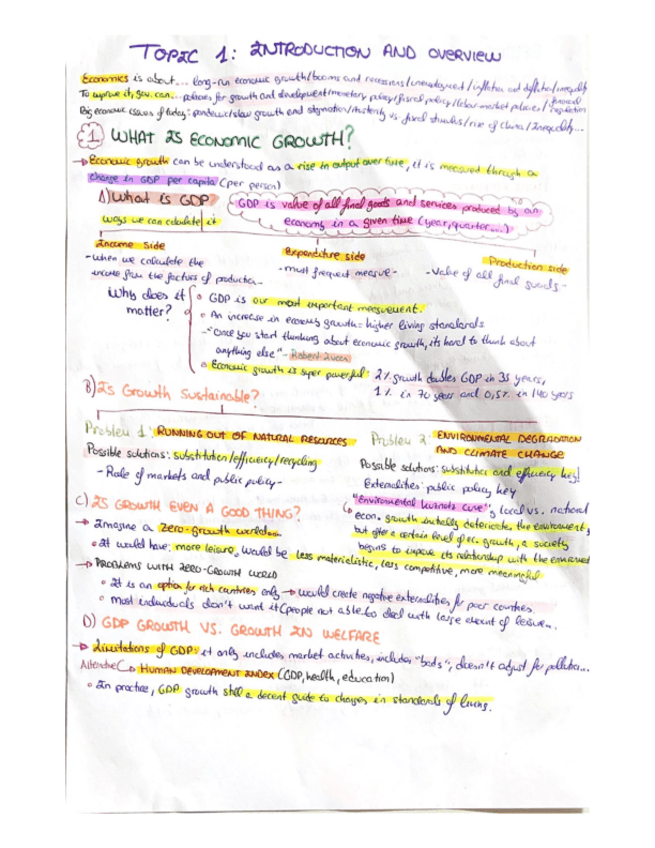 TOPIC 1: INTRODUCTION AND OVERVIEW
Economics is about... long-run economic growth/booms and recessions/unemployment/inflation and deflation/inequality
To improve it, gov. can... policies for growth and development/monetary policy/fiscal policy/labour market policies/financial regulation
Big economic issues of today: pandemic/slow growth and stagnation/Austerity vs fiscal stimulus/rise of China/Inequality...
1 WHAT IS ECONOMIC GROWTH?
→ Economic growth can be understood as a rise in output over time, it is measured through a
change in GDP per capita (per person)
A) What is GDP
GDP is value of all final goods and services produced by an
economy in a given time (year, quarter...)
ways we can calculate it
Income side
- when we calculate the
income from the factors of production -
Expenditure side
- most frequent measure -
Production side
- Value of all final goods -
Why does it
matter?
• GDP is our most important measurement.
• An increase in economy growth = higher living standards
- "Once you start thinking about economic growth, its hard to think about
anything else" - Robert Lucas
• Economic growth is super powerful: 2% growth doubles GDP in 35 years,
1% in 70 years and 0,5% in 140 years
B) Is Growth Sustainable?
Problem 1: RUNNING OUT OF NATURAL RESOURCES
Possible solutions: substitution/efficiency/recycling
- Role of markets and public policy -
Problem 2: ENVIRONMENTAL DEGRADATION
AND CLIMATE CHANGE
Possible solutions: substitution and efficiency key!
Externalities: public policy key
"Environmental kuznets curve", local vs. national
econ. growth initially deteriorates the environment,
but after a certain level of ec. growth, a society
begins to improve its relationship with the environment
C) IS GROWTH EVEN A GOOD THING?
→ Imagine a zero-growth world...
• It would have: more leisure, would be less materialistic, less competitive, more meaningful
→ PROBLEMS WITH ZERO-GROWTH WORLD
• It is an option for rich countries only → would create negative externalities for poor countries
• Most individuals don't want it (people not able to deal with large amount of leisure...
D) GDP GROWTH VS. GROWTH IN WELFARE
→ Limitations of GDP: it only includes market activities, includes "bads", doesn't adjust for pollution...
Alternative → HUMAN DEVELOPMENT INDEX (GDP, health, education)
• In practice, GDP growth still a decent guide to changes in standards of living.